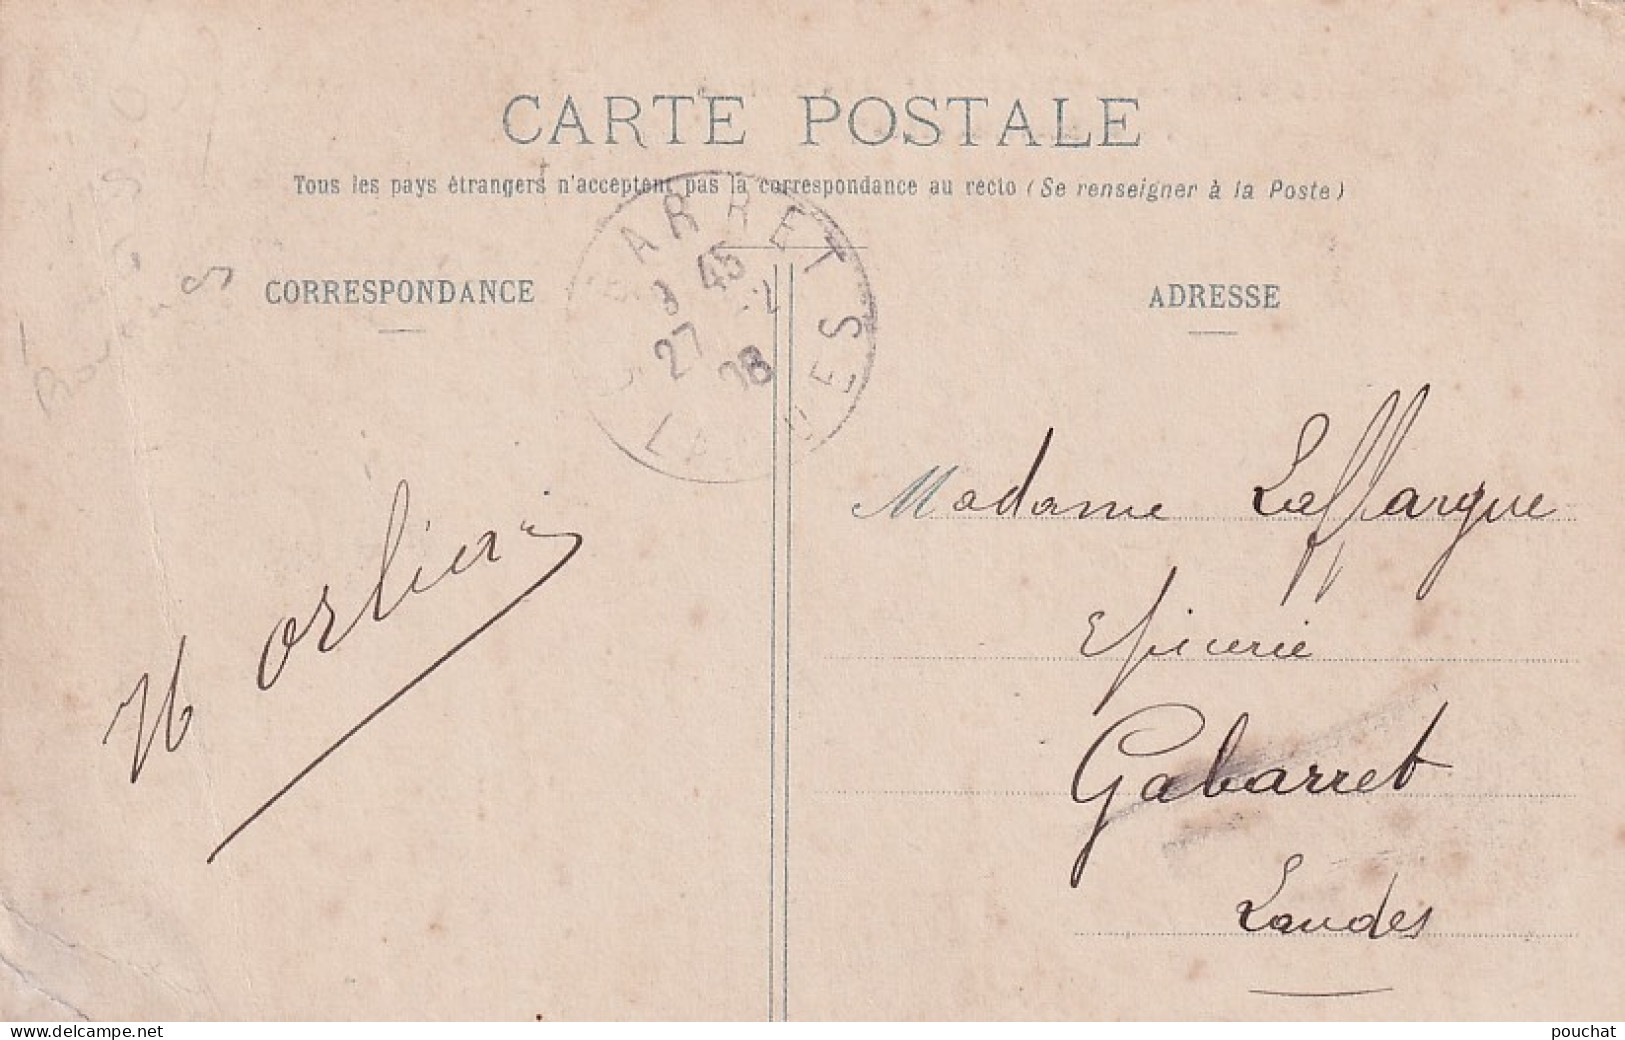 CARTE POSTALE
Tous les pays étrangers n'acceptent pas la correspondance au recto (Se renseigner à la Poste)
GABARRET
45
27 -2
08
LANDES
CORRESPONDANCE
ADRESSE
Madame Laffargue
Epicerie
Gabarret
Landes
www.delcampe.net
pouchat